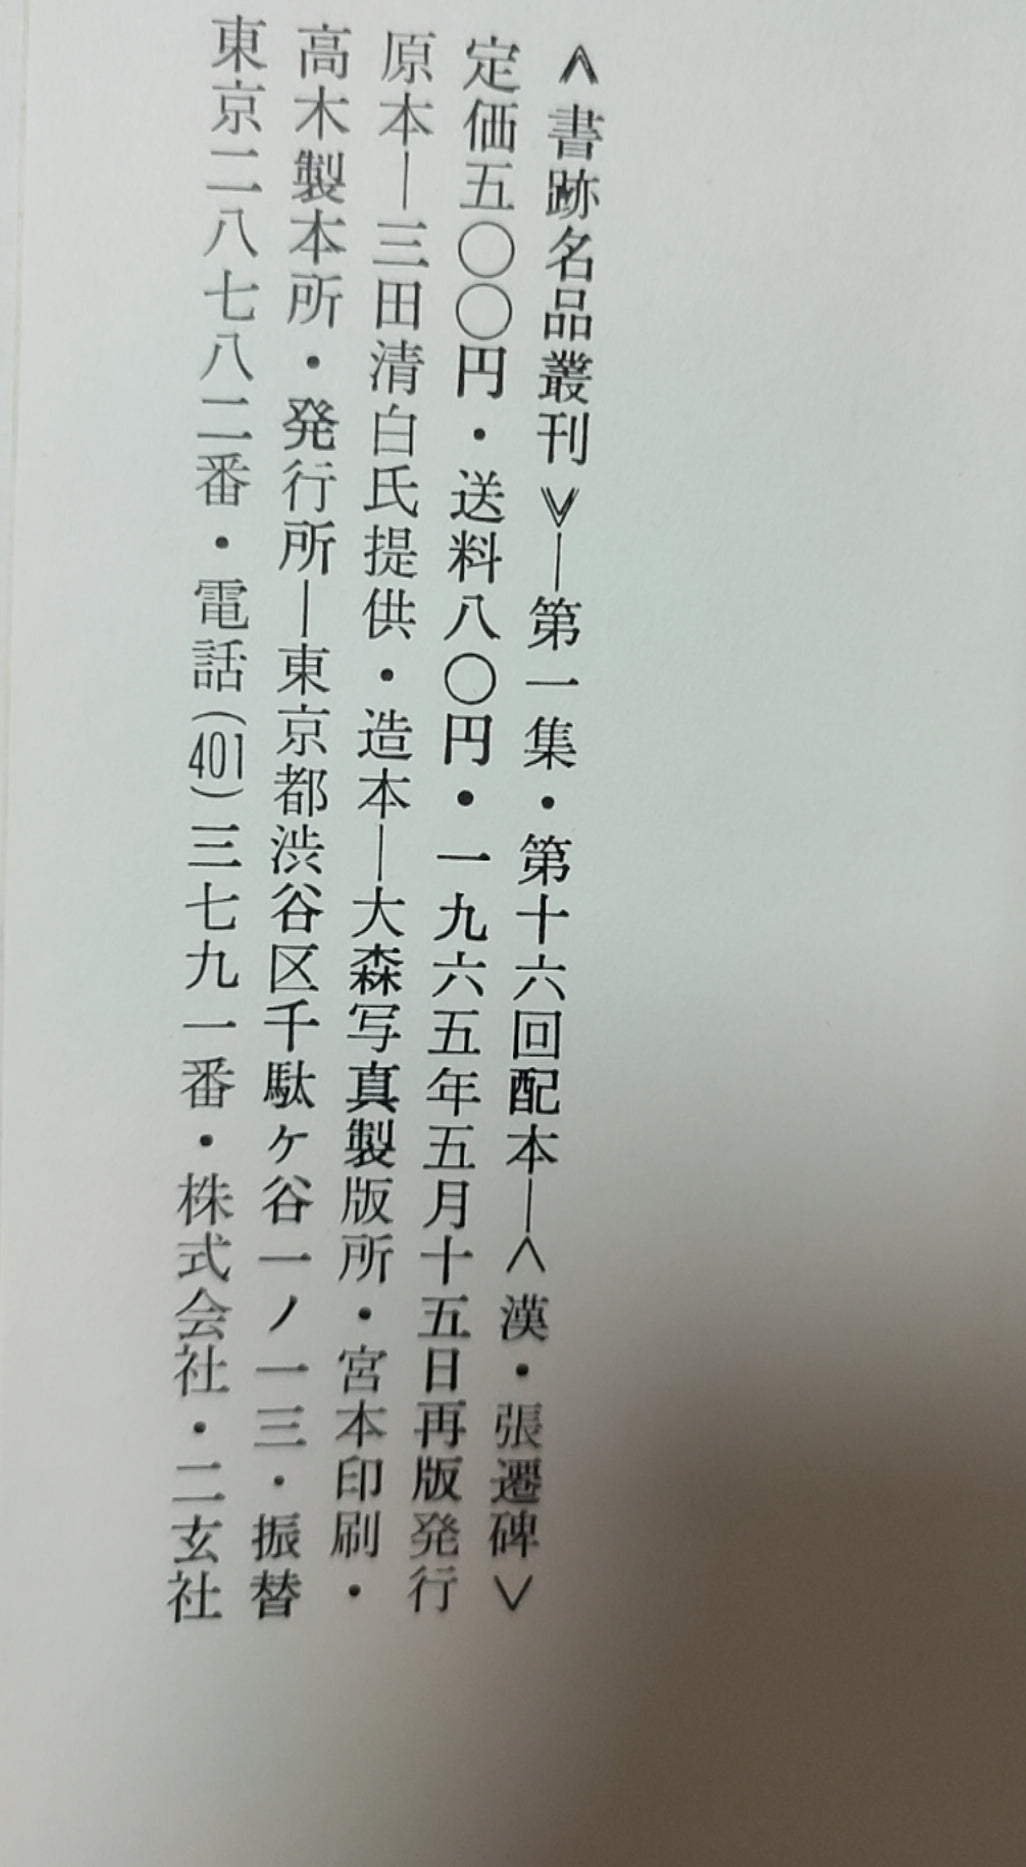 ≪書跡名品叢刊≫―第一集・第十六回配本―〈漢・張遷碑〉
定価五〇〇円・送料八〇円・一九六五年五月十五日再版発行
原本―三田清白氏提供・造本―大森写真製版所・宮本印刷・
高木製本所・発行所―東京都渋谷区千駄ヶ谷一ノ一三・振替
東京二八七八二番・電話(401)三七九一番・株式会社・二玄社